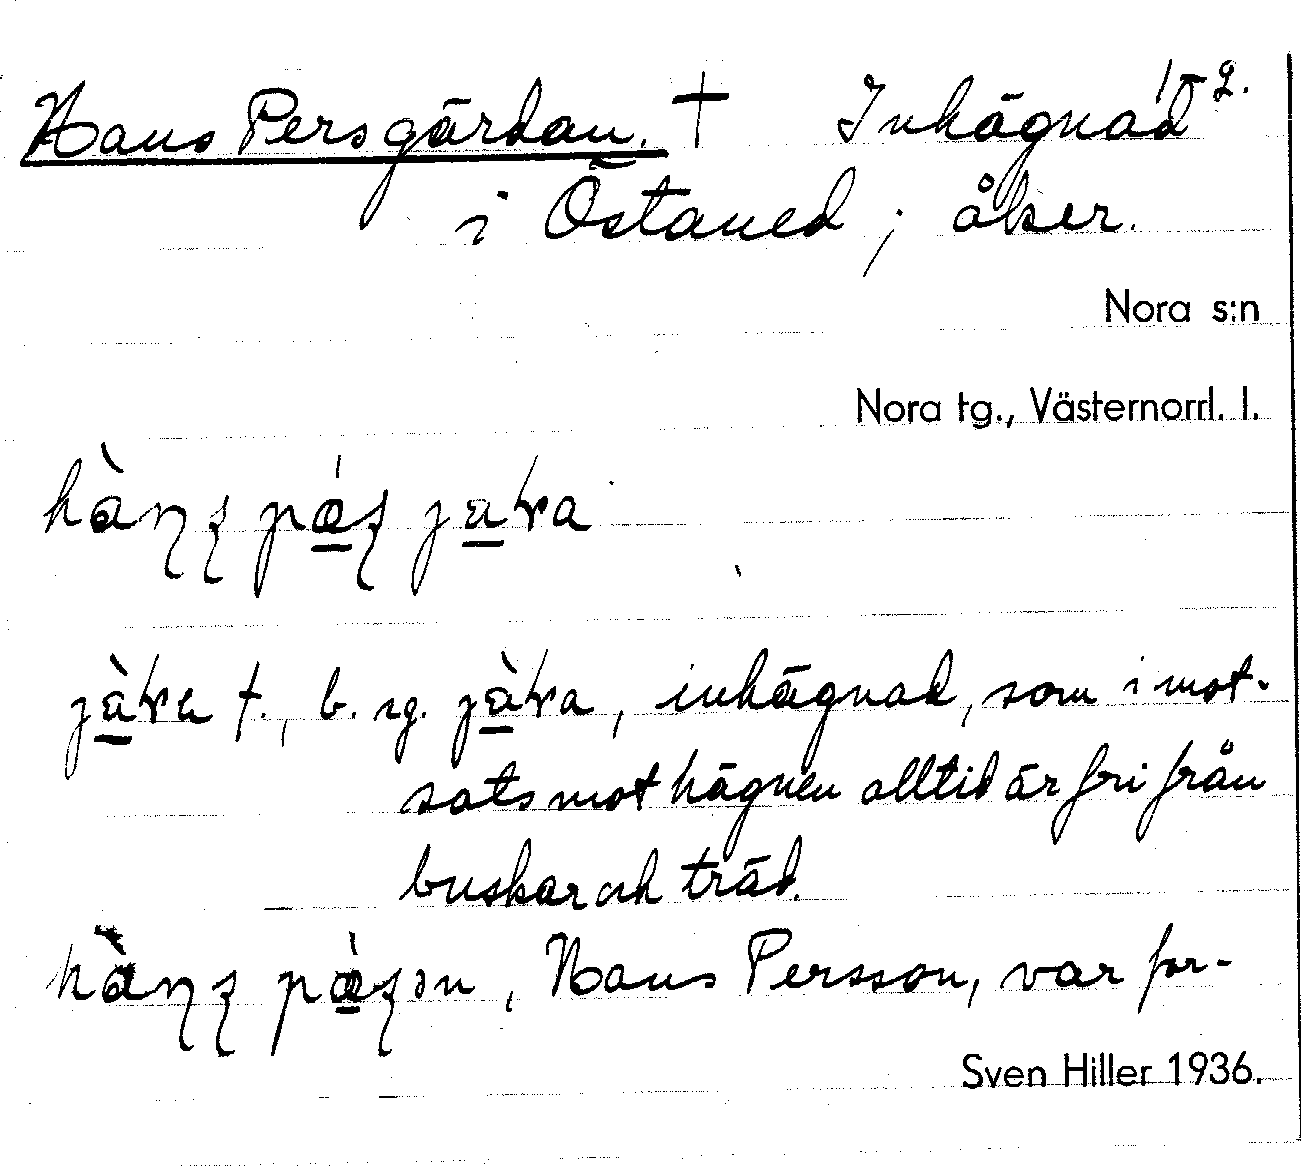 Hans Persgärdan. † Inhägnad 1-2.
i Östaned; åker.
Nora s:n
Nora tg., Västernorrl. l.
jàra f., b. sg. jàra, inhägnad, som i mot-
sats mot hägnen alltid är fri från
buskar och träd.
Hans Persson, var for-
Sven Hiller 1936.